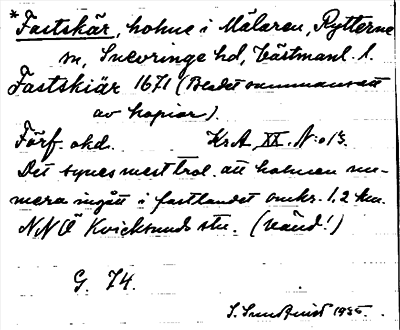 *Fastskär, holme i Mälaren, Rytterne
sn, Snevringe hd, Västmanl. l.
Fastskiär 1671 (Bladet sammansatt
av kopior).
Förf. okd. KrA, XX. N:o 13.
Det synes mest trol. att holmen nu-
mera ingått i fastlandet omkr. 1,2 km.
NNÖ Kvicksunds stn. (Vänd!)
G. 74.
S. Sundquist 1935.